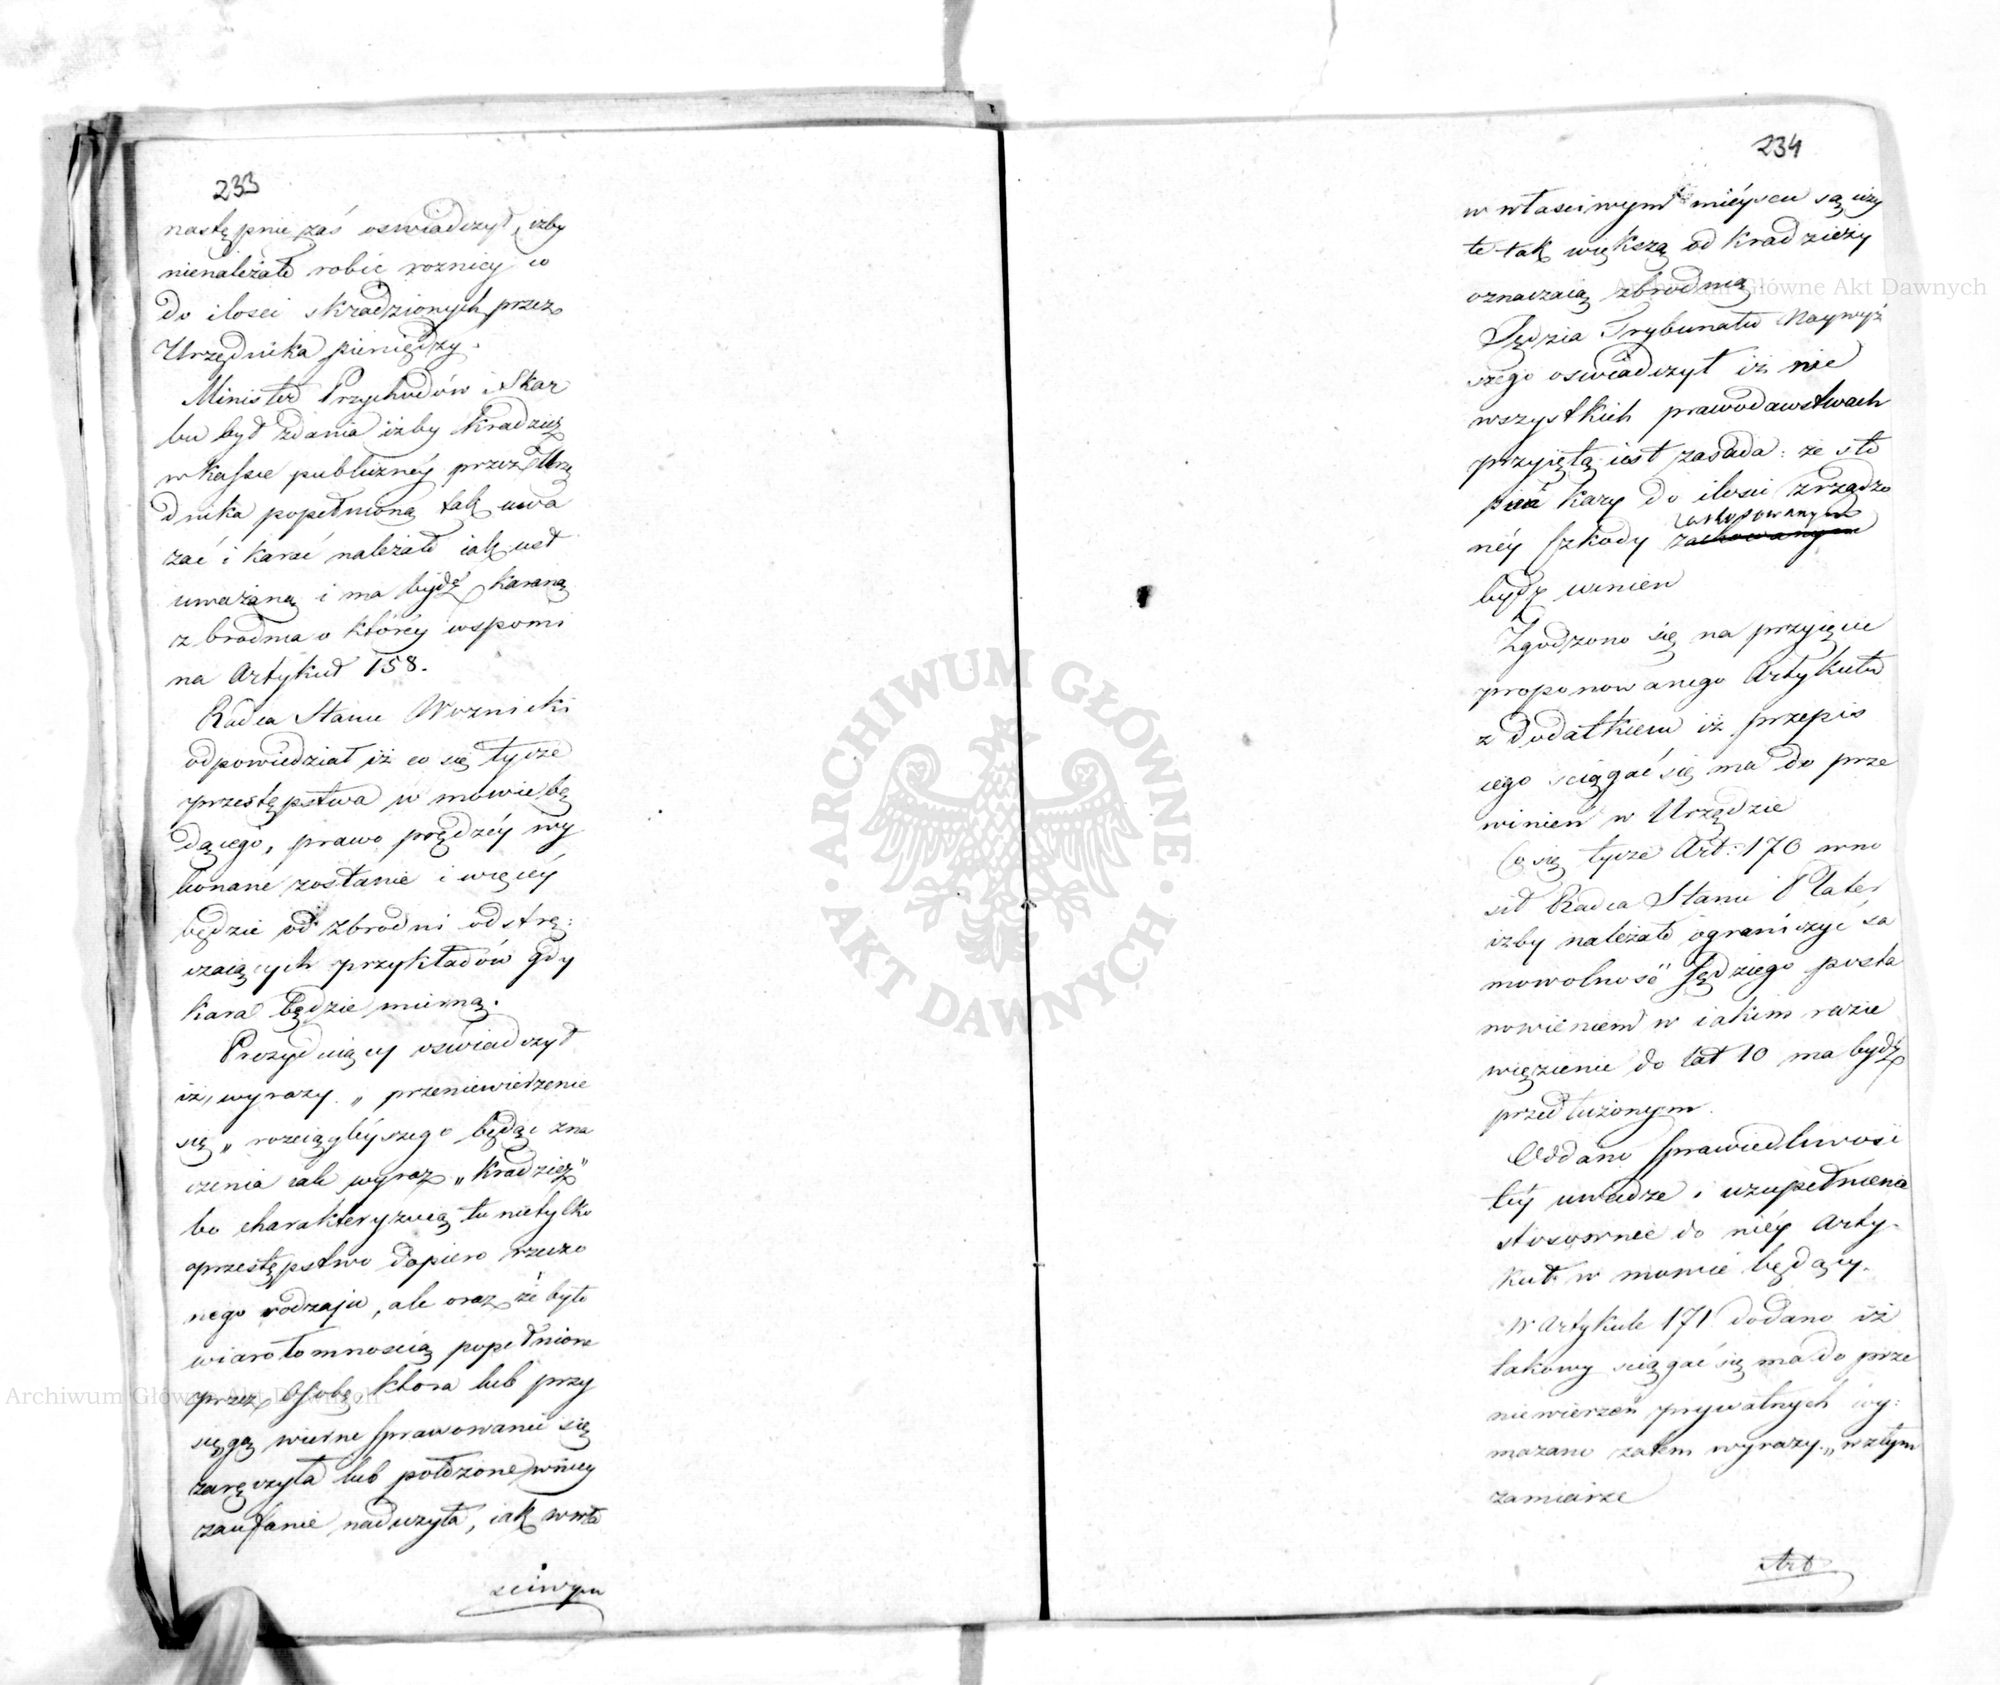 233
następnie zaś oswiadczył, izby
nienależało robić roznicy co
do ilosci skradzionych przez
Urzędnika pieniędzy.
Minister Przychodów i Skar
bu był zdania iżby kradzież
w kassie publicznéy przez Urzę
dnika popełnioną tak uwa
zać i karać należało iak iest
uważaną i ma bydź karaną
zbrodnia o któréy wspomi
na Artykuł 158.
Radca Stanu Woznicki
odpowiedział iż co się tycze
przestępstwa w mowie bę
dącego, prawo prędzéy wy
konane zostanie i więcéy
będzie od zbrodni odstrę:
czaiących przykładów gdy
kara będzie mierną.
Prezyduiący oświadczył
iż, wyrazy „ przeniewierzenie
się „ rozciągléyszego będąc zna
czenia iak wyraz „kradzież”
bo charakteryzuią tu nietylko
przestępstwo dopiero rzeczo
nego rodzaju, ale oraz że było
wiarołomnoscią popełnione
przez Osobę ktora lub przy
sięgą wierne sprawowanie się
zaręczyła lub położone w niey
zaufanie nadużyła, iak w wła
sciwym
234
w własciwym miéyscu są uży
te tak większą od kradzieży
oznaczaią zbrodnią
Sędzia Trybunału Naywyż
szego oswiadczył iż nie
wszystkich prawodawstwach
przyiętą iest zasada: że sto
pień kary do ilosci zrządzo
néy szkody zachowanym
zastosowanym
bydź winien
Zgodzono się na przyięcie
proponowanego Artykułu
z dodatkiem iż przepis
iego sciągać się ma do prze
winien w Urzędzie
Co się tycze Art: 170 wno
sił Radca Stanu Plater
izby należało ograniczyć sa
mowolność Sędziego posta
nowieniem w iakim razie
więzienie do lat 10 ma bydź
przedłużonym.
Oddano sprawiedliwość
téy uwadze i uzupełnienia
stosownie do niéy Arty-
kuł w mowie będący.
W Artykule 171 dodano iż
takowy sciągać się ma do prze
niewierzeń prywatnych wy:
mazano zatem wyrazy „w złym
zamiarze
Art
Archiwum Główne Akt Dawnych
Archiwum Główne Akt Dawnych
ARCHIWUM GŁÓWNE
AKT DAWNYCH